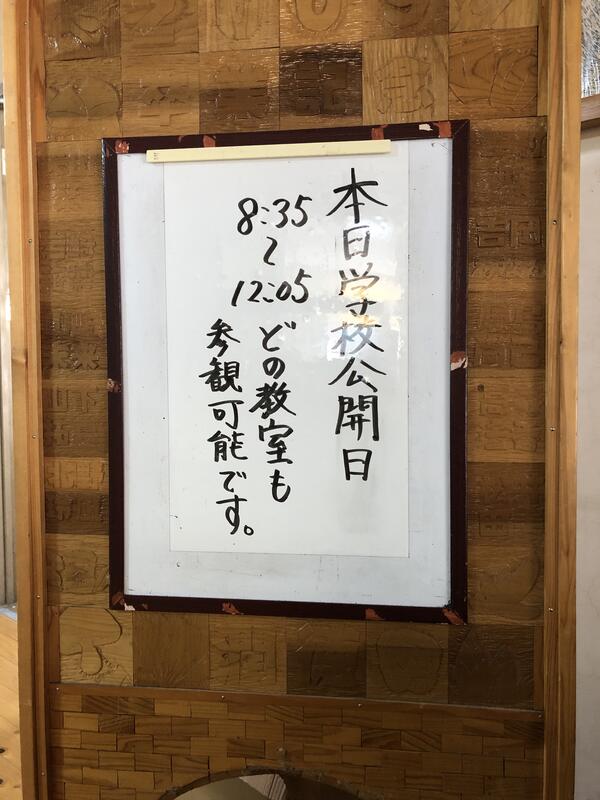 本日学校公開日
8:35
〜
12:05
どの教室も
参観可能です。